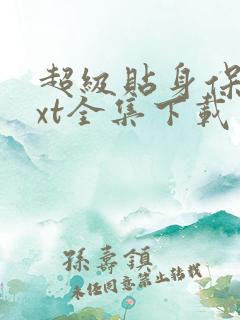 超級貼身保
xt全集下載
孫壽鎮
未经同意禁止转载